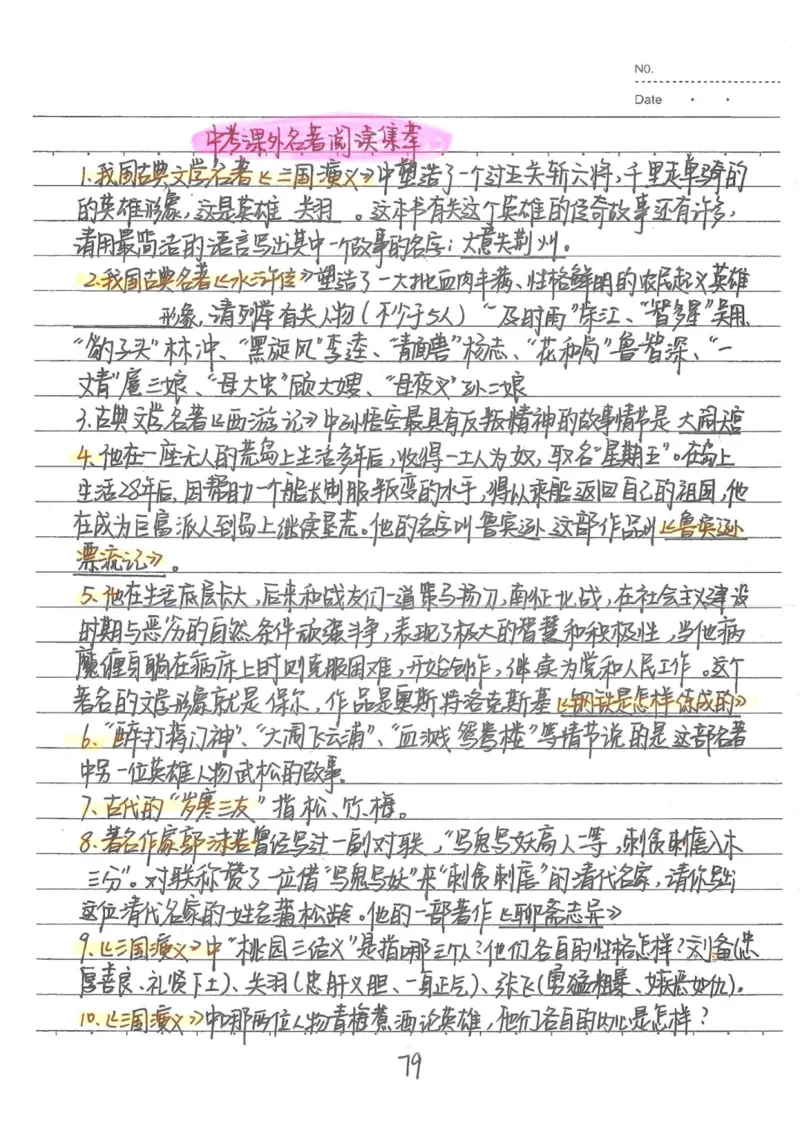 NO.
Date
中考课外名著阅读集萃
1.我国古典文学名著《三国演义》中塑造了一个过五关斩六将,千里走单骑的
的英雄形象,这是英雄 关羽 。这本书有关这个英雄的传奇故事还有许多,
请用最简洁的语言写出其中一个故事的名字:大意失荆州。
2.我国古典名著《水浒传》塑造了一大批血肉丰满、性格鲜明的农民起义英雄
形象,请列举有关人物(不少于5人) ~及时雨"宋江、"智多星"吴用、
"豹子头"林冲、"黑旋风"李逵、"青面兽"杨志、"花和尚"鲁智深、"一
丈青"扈三娘、"母大虫"顾大嫂、"母夜叉"孙二娘
3.古典文学名著《西游记》中孙悟空最具有反叛精神的故事情节是 大闹天宫
4.他在一座无人的荒岛上生活多年后,收得一土人为奴,取名"星期五"。在岛上
生活28年后,因帮助一个船长制服叛变的水手,得以乘船返回自己的祖国,他
在成为巨富派人到岛上继续垦荒。他的名字叫鲁宾逊 这部作品叫《鲁宾逊
漂流记》。
5.他在生活底层长大,后来和战友们一道策马扬刀,南征北战,在社会主义建设
时期与恶劣的自然条件顽强斗争,表现了极大的智慧和积极性,当他病
魔缠身躺在病床上时则克服困难,开始创作,继续为党和人民工作。这个
著名的文学形象就是 保尔,作品是奥斯特洛克斯基《钢铁是怎样练成的》
6."醉打蒋门神"、"大闹飞云浦"、"血溅鸳鸯楼"等情节说的是这部名著
中另一位英雄人物武松的故事.
7.古代的"岁寒三友"指松、竹、梅。
8.著名作家郭沫若曾经写过一副对联,"写鬼写妖高人一等,刺贪刺虐入木
三分"。对联称赞了一位借"写鬼写妖"来"刺贪刺虐"的清代名家,请你写出
这位清代名家的姓名蒲松龄。他的一部著作《聊斋志异》
9.《三国演义》中"桃园三结义"是指哪三个人?他们各自的性格怎样?刘备(忠
厚善良、礼贤下士)、关羽(忠肝义胆、一身正气)、张飞(勇猛粗暴、嫉恶如仇)。
10.《三国演义》中哪两位人物青梅煮酒论英雄,他们各自的内心是怎样?
79